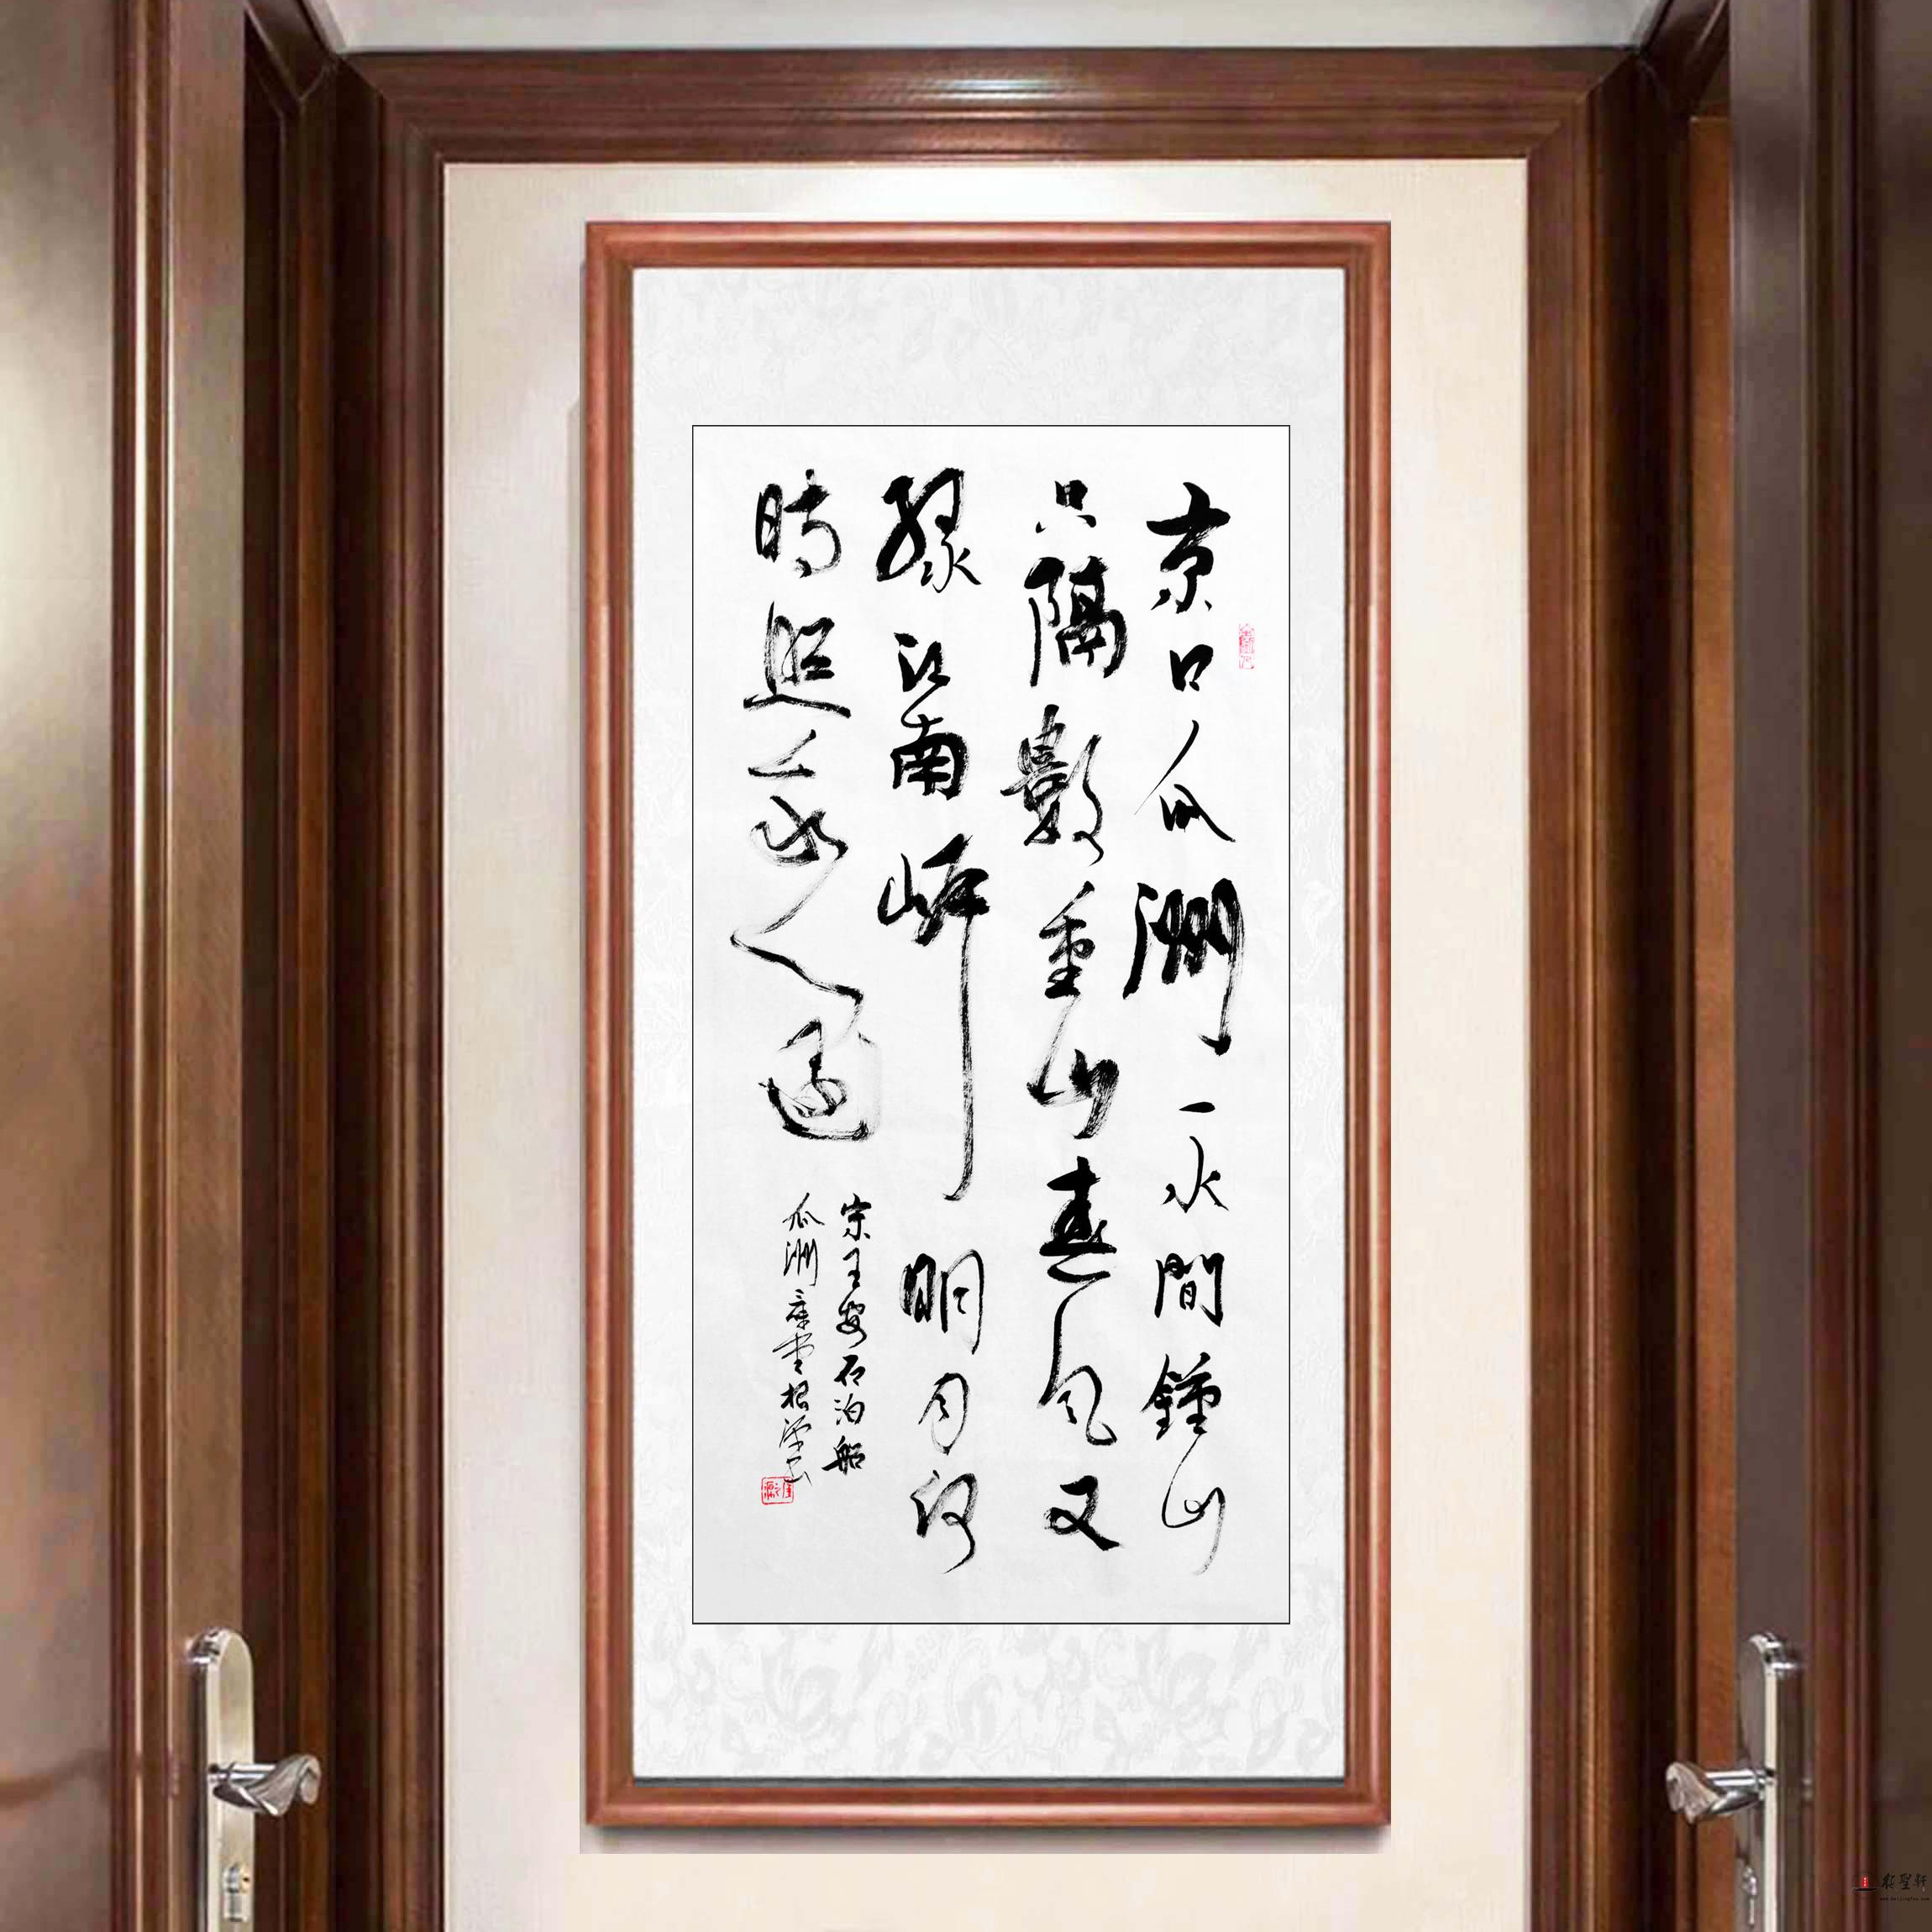 京口瓜洲一水間鍾山
只隔數重山春風又
綠江南岸明月何
時照我還
宋王安石泊船
瓜洲